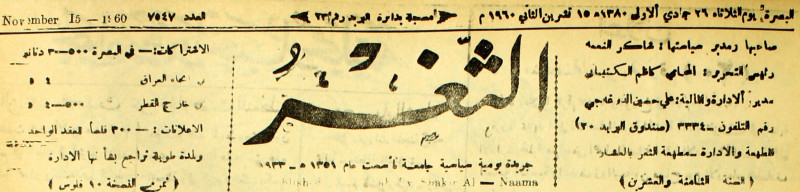 البصرة: يوم الثلاثاء ٢٦ جمادي الاولى ١٣٨٠ ه ١٥ تشرين الثاني ١٩٦٠ م
مسجلة بدائرة البريد رقم ٢٣
العدد ٧٥٤٧
November 15 — 1960
صاحبها ومدير سياستها: شاكر النعمة
رئيس التحرير: المحامي كاظم
مدير الادارة والمالية: علي حسين
رقم التلفون — ٣٣٣٤ (صندوق البريد ٢٠)
المطبعة والادارة — مطبعة الثغر بالعشار
( السنة الثامنة والعشرين )
الثغر
جريدة يومية سياسية جامعة تأسست عام ١٣٥١ ه — ١٩٣٣
Shaker Al — Naama
الاشتراكات: — في البصرة ٥٠٠—٣ دنانير
انحاء العراق
في خارج القطر ٥٠٠—٤
الاعلانات: — ٣٠٠ فلساً العقد الواحد
ولمدة طويلة تراجع بشأنها الادارة
( ثمن النسخة ١٠ فلوس )